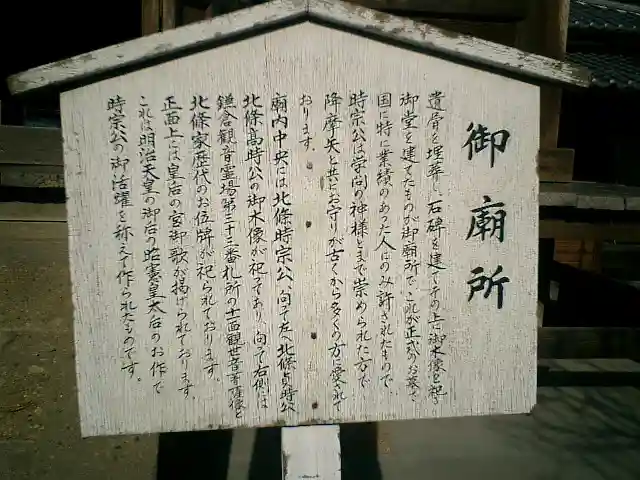 御廟所
遺骨を埋葬し、石碑を建て、その上に御木像を起き
御堂を建てたものが御廟所で、これが正式のお墓で
国に特に業績のあった人にのみ許されたもので、
時宗公は学問の神様とまで崇められた方で
降摩矢と共にお守りが古くから多くの方に愛されて
おります。
廟内中央には北條時宗公、向って左へ北條貞時公
北條高時公の御木像が祀っており、向って右側は
鎌倉観音霊場第三十三番札所の十一面観世音菩薩像と
北條家歴代のお位牌が祀られております。
正面上には皇后の宮御歌が掲げられております。
これは明治天皇の御后の昭憲皇太后のお作で
時宗公の御活躍を称えて作られたものです。